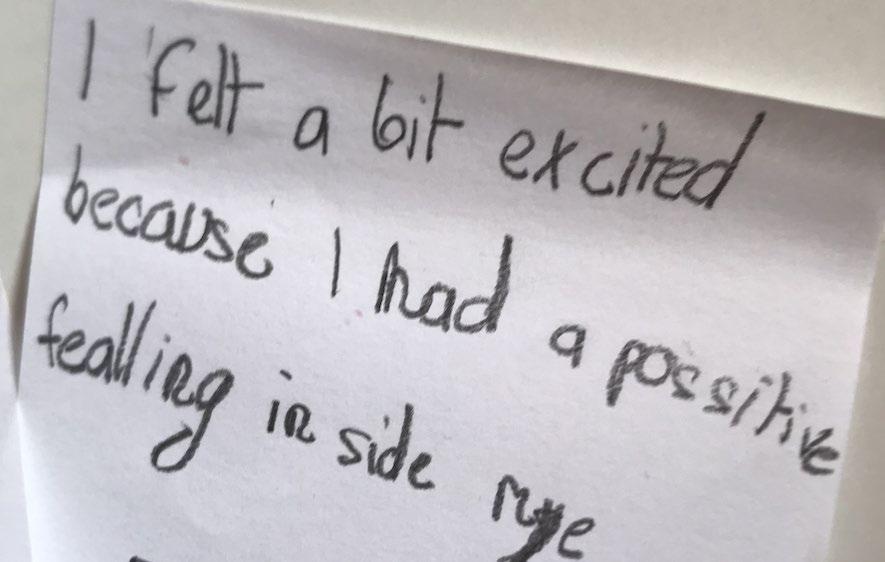 I felt a bit excited
because I had a possitive
fealling in side mye